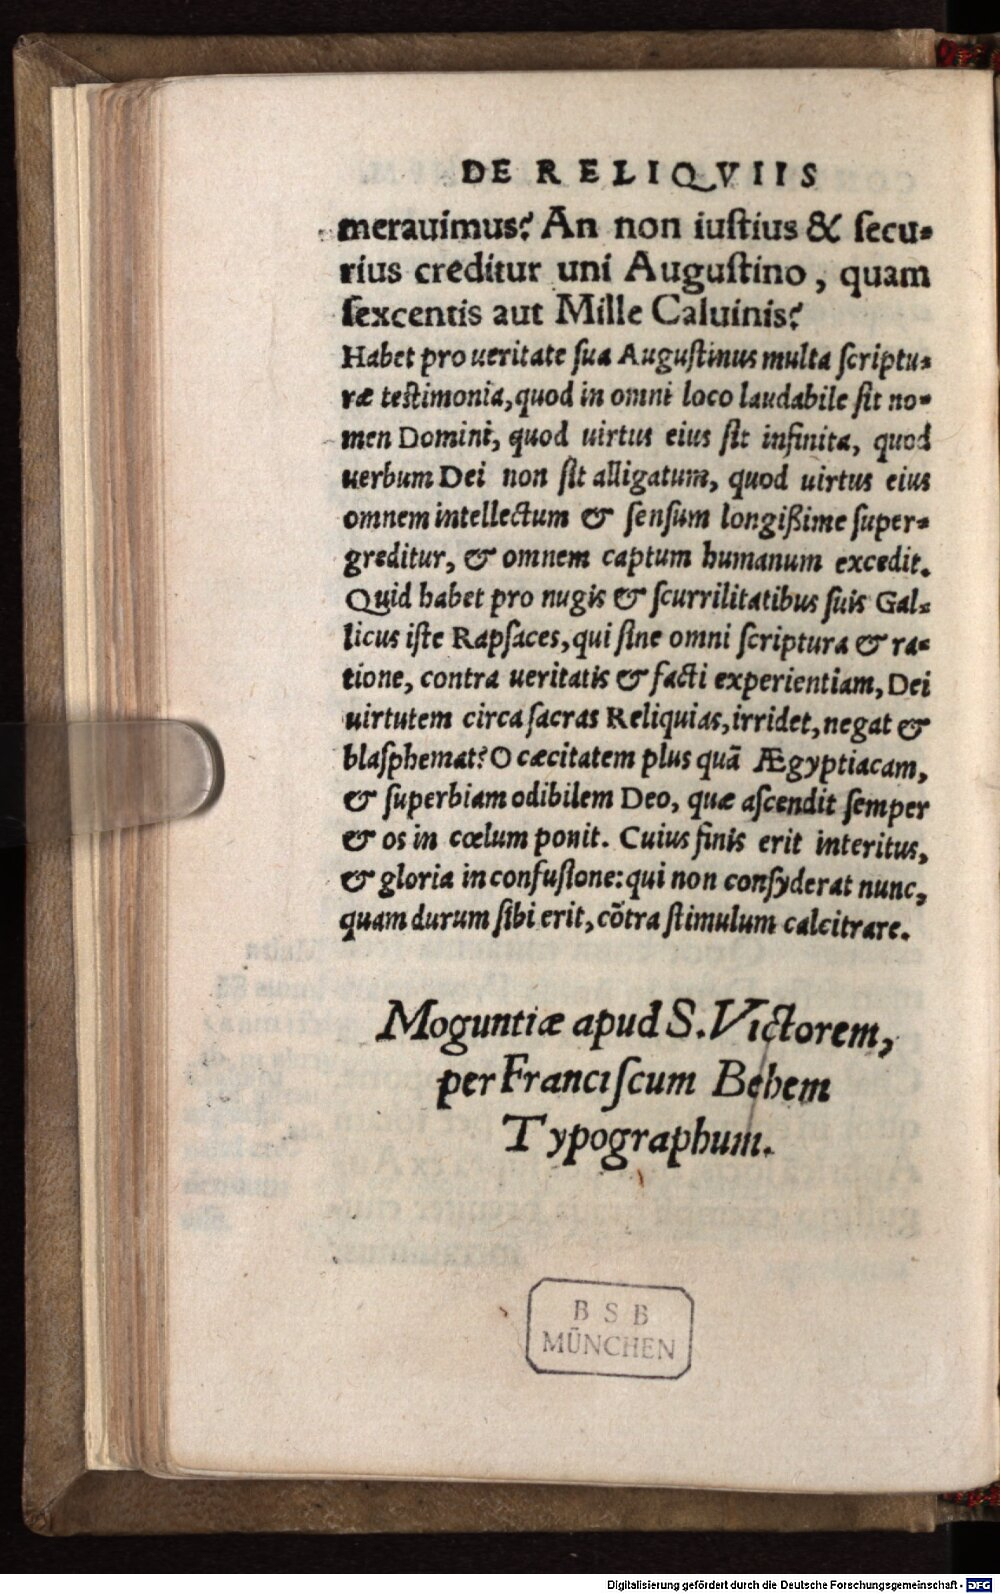 DE RELIQVIIS
merauimus? An non iuſtius & ſecu-
rius creditur uni Auguſtino, quam
ſexcentis aut Mille Caluinis?
Habet pro ueritate ſua Auguſtinus multa ſcriptu-
ræ teſtimonia, quod in omni loco laudabile ſit no-
men Domini, quod uirtus eius ſit infinita, quod
uerbum Dei non ſit alligatum, quod uirtus eius
omnem intellectum & ſenſum longißime ſuper-
greditur, & omnem captum humanum excedit.
Quid habet pro nugis & ſcurrilitatibus ſuis Gal-
licus iſte Rapſaces, qui ſine omni ſcriptura & ra-
tione, contra ueritatis & facti experientiam, Dei
uirtutem circa ſacras Reliquias, irridet, negat &
blaſphemat? O cæcitatem plus quã Ægyptiacam,
& ſuperbiam odibilem Deo, quæ aſcendit ſemper
& os in cœlum ponit. Cuius finis erit interitus,
& gloria in confuſione: qui non conſyderat nunc,
quam durum ſibi erit, cõtra ſtimulum calcitrare.
Moguntiæ apud S. Victorem,
per Franciſcum Behem
Typographum.
BSB
MÜNCHEN
Digitalisierung gefördert durch die Deutsche Forschungsgemeinschaft - DFG